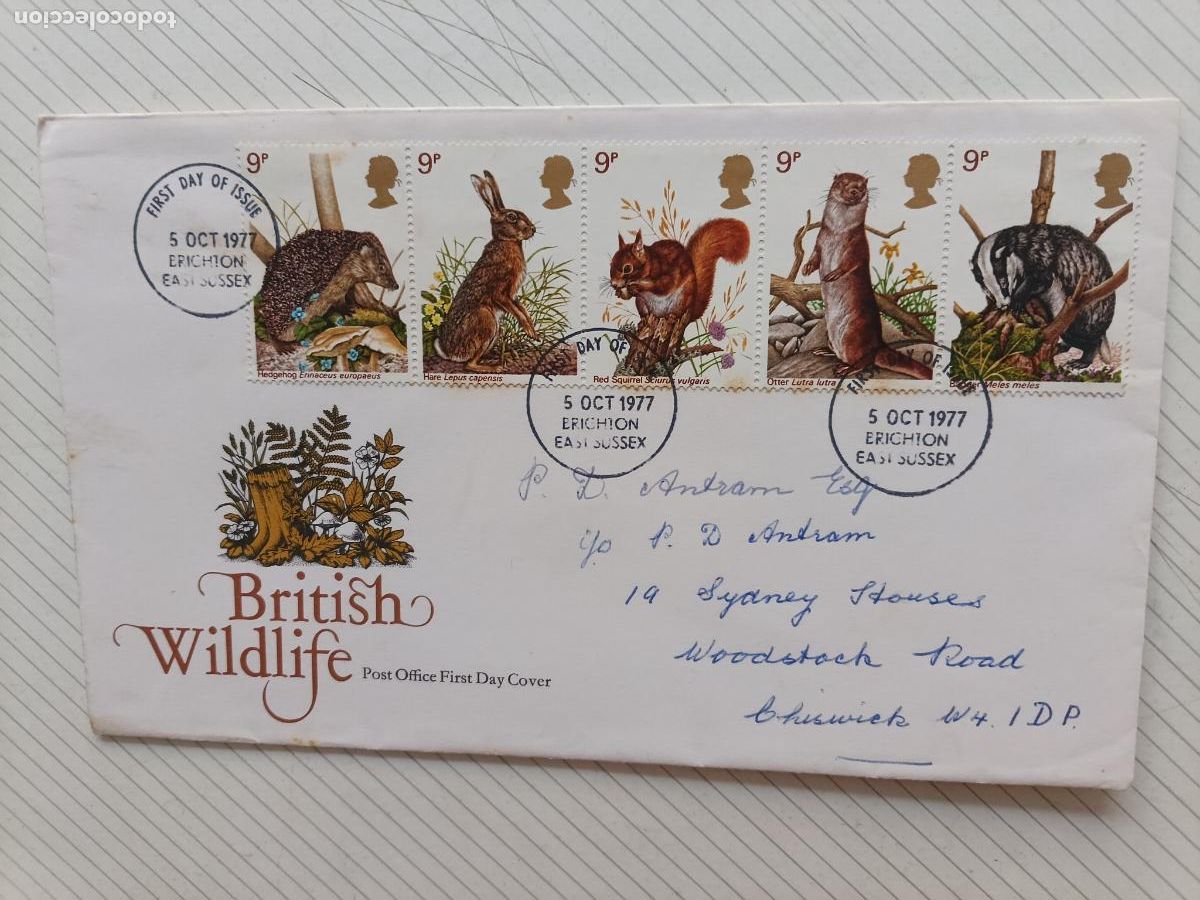 todocoleccion
9P
9P
9P
9P
9P
FIRST DAY OF ISSUE
5 OCT 1977
BRIGHTON
EAST SUSSEX
Hedgehog Erinaceus europaeus
Hare Lepus capensis
Red Squirrel Sciurus vulgaris
Otter Lutra lutra
Badger Meles meles
DAY OF
5 OCT 1977
BRIGHTON
EAST SUSSEX
FIRST DAY OF ISSUE
5 OCT 1977
BRIGHTON
EAST SUSSEX
P. D. Antram Esq
c/o P. D Antram
19 Sydney Houses
Woodstock Road
Chiswick W4. 1DP.
British
Wildlife
Post Office First Day Cover